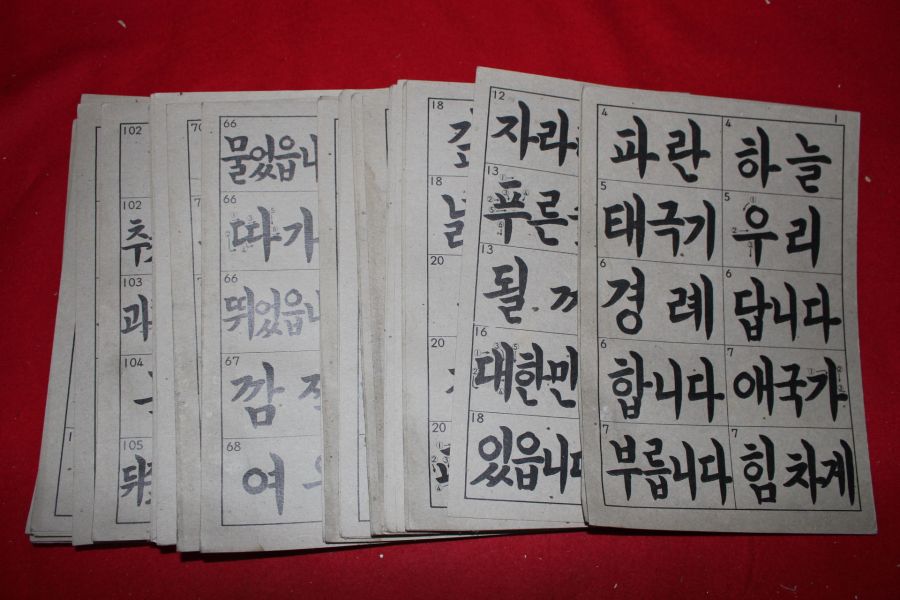 1
4 파란 4 하늘
5 태극기 5 우리
6 경례 6 답니다
6 합니다 7 애국가
7 부릅니다 7 힘차게
12 자라
13 푸른
13 될
16 대한민
18 있읍니다
18
18
20
20
20
66 물었읍니
66 따가
66 뛰었읍니
67 깜
68 여
70
102
102
103 과
104
105